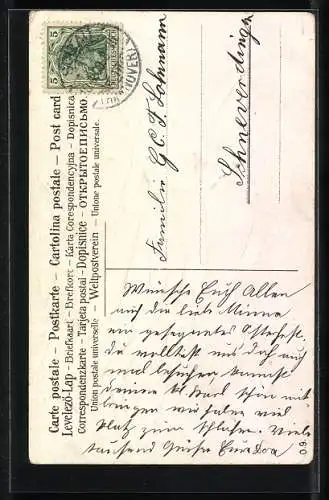 Carte postale – Postkarte – Cartolina postale – Post card
Levelező-Lap – Briefkaart – Brefkort – Karta Corespondencyjna – Dopisnica
Correspondenzkarte – Tarjeta postal – Dopisnice – ОТКРЫТОЕ ПИСЬМО
Union postale universelle – Weltpostverein – Unione postale universale.
5 5
Familie G. C. F. Lohmann
Schneverdingen
Wünsche Euch Allen
auch die liebe Minna
ein gesegnetes Osterfest.
du wolltest uns doch mal
besuchen kannst
deinen
wir haben
Platz zum Schlafen. Viele
tausend Grüße Eure
09.